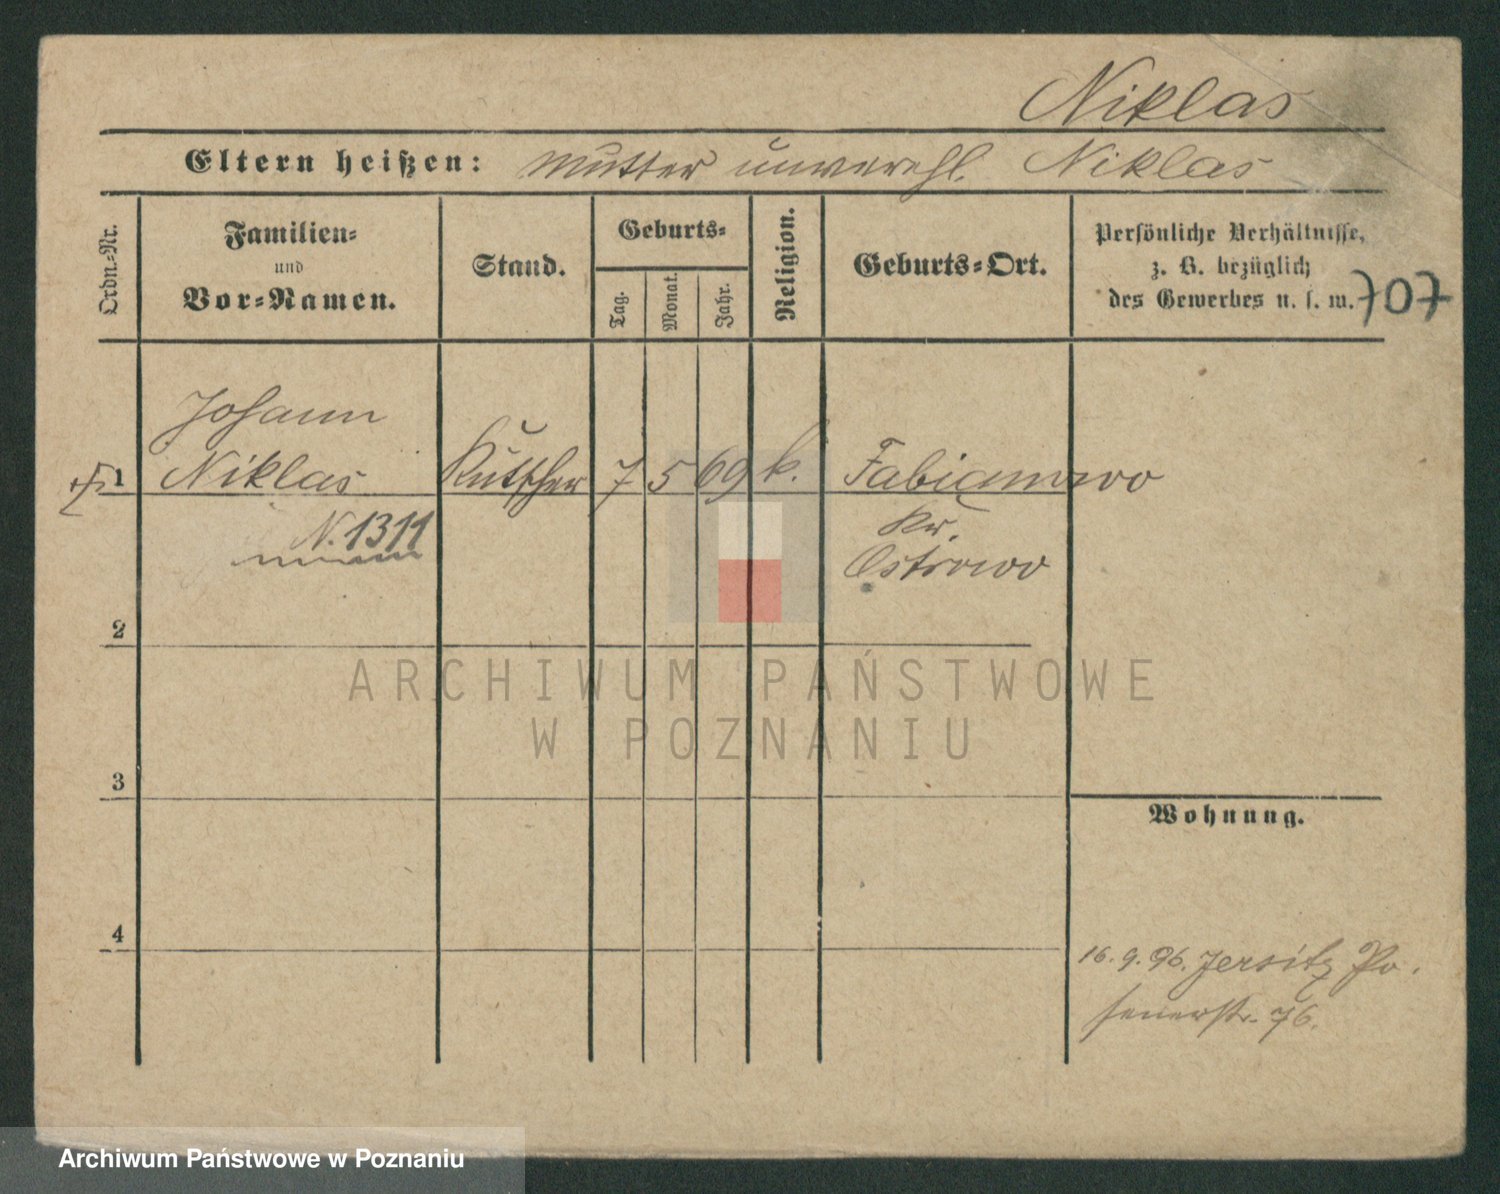 Niklas
Eltern heißen: Mutter unverehl. Niklas
Ordn.-Nr.
Familien-
und
Vor-Namen.
Stand.
Geburts-
Tag.
Monat.
Jahr.
Religion.
Geburts-Ort.
Persönliche Verhältnisse,
z. B. bezüglich
des Gewerbes u. s. w.
707
Johann
1 Niklas Kutscher 7 5 69 k. Fabianowo
N. 1311
Kr.
Ostrowo
2
ARCHIWUM PAŃSTWOWE
W POZNANIU
3
Wohnung.
4
16. 9. 96. Jersitz Po
senerstr. 76.
Archiwum Państwowe w Poznaniu